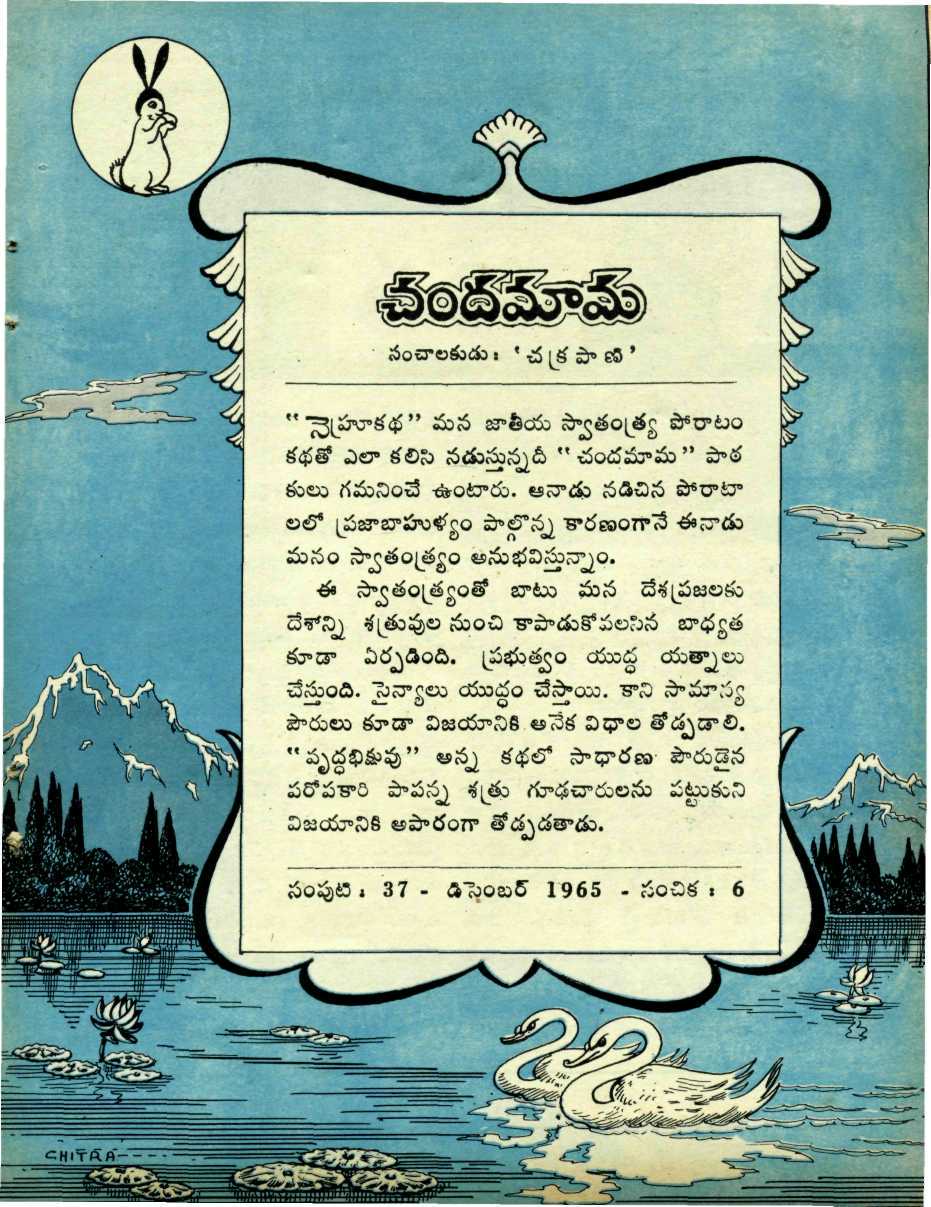 చందమామ
సంచాలకుడు : ‘చక్రపాణి’
“నెహ్రూకథ” మన జాతీయ స్వాతంత్ర్య పోరాటం
కథతో ఎలా కలిసి నడుస్తున్నదీ “చందమామ” పాఠ
కులు గమనించే ఉంటారు. ఆనాడు నడిచిన పోరాటా
లలో ప్రజాబాహుళ్యం పాల్గొన్న కారణంగానే ఈనాడు
మనం స్వాతంత్ర్యం అనుభవిస్తున్నాం.
ఈ స్వాతంత్ర్యంతో బాటు మన దేశప్రజలకు
దేశాన్ని శత్రువుల నుంచి కాపాడుకోవలసిన బాధ్యత
కూడా ఏర్పడింది. ప్రభుత్వం యుద్ధ యత్నాలు
చేస్తుంది. సైన్యాలు యుద్ధం చేస్తాయి. కాని సామాన్య
పౌరులు కూడా విజయానికి అనేక విధాల తోడ్పడాలి.
“వృద్ధభిక్షువు” అన్న కథలో సాధారణ పౌరుడైన
పరోపకారి పాపన్న శత్రు గూఢచారులను పట్టుకుని
విజయానికి అపారంగా తోడ్పడతాడు.
సంపుటి : 37 - డిసెంబర్ 1965 - సంచిక : 6
CHITRA